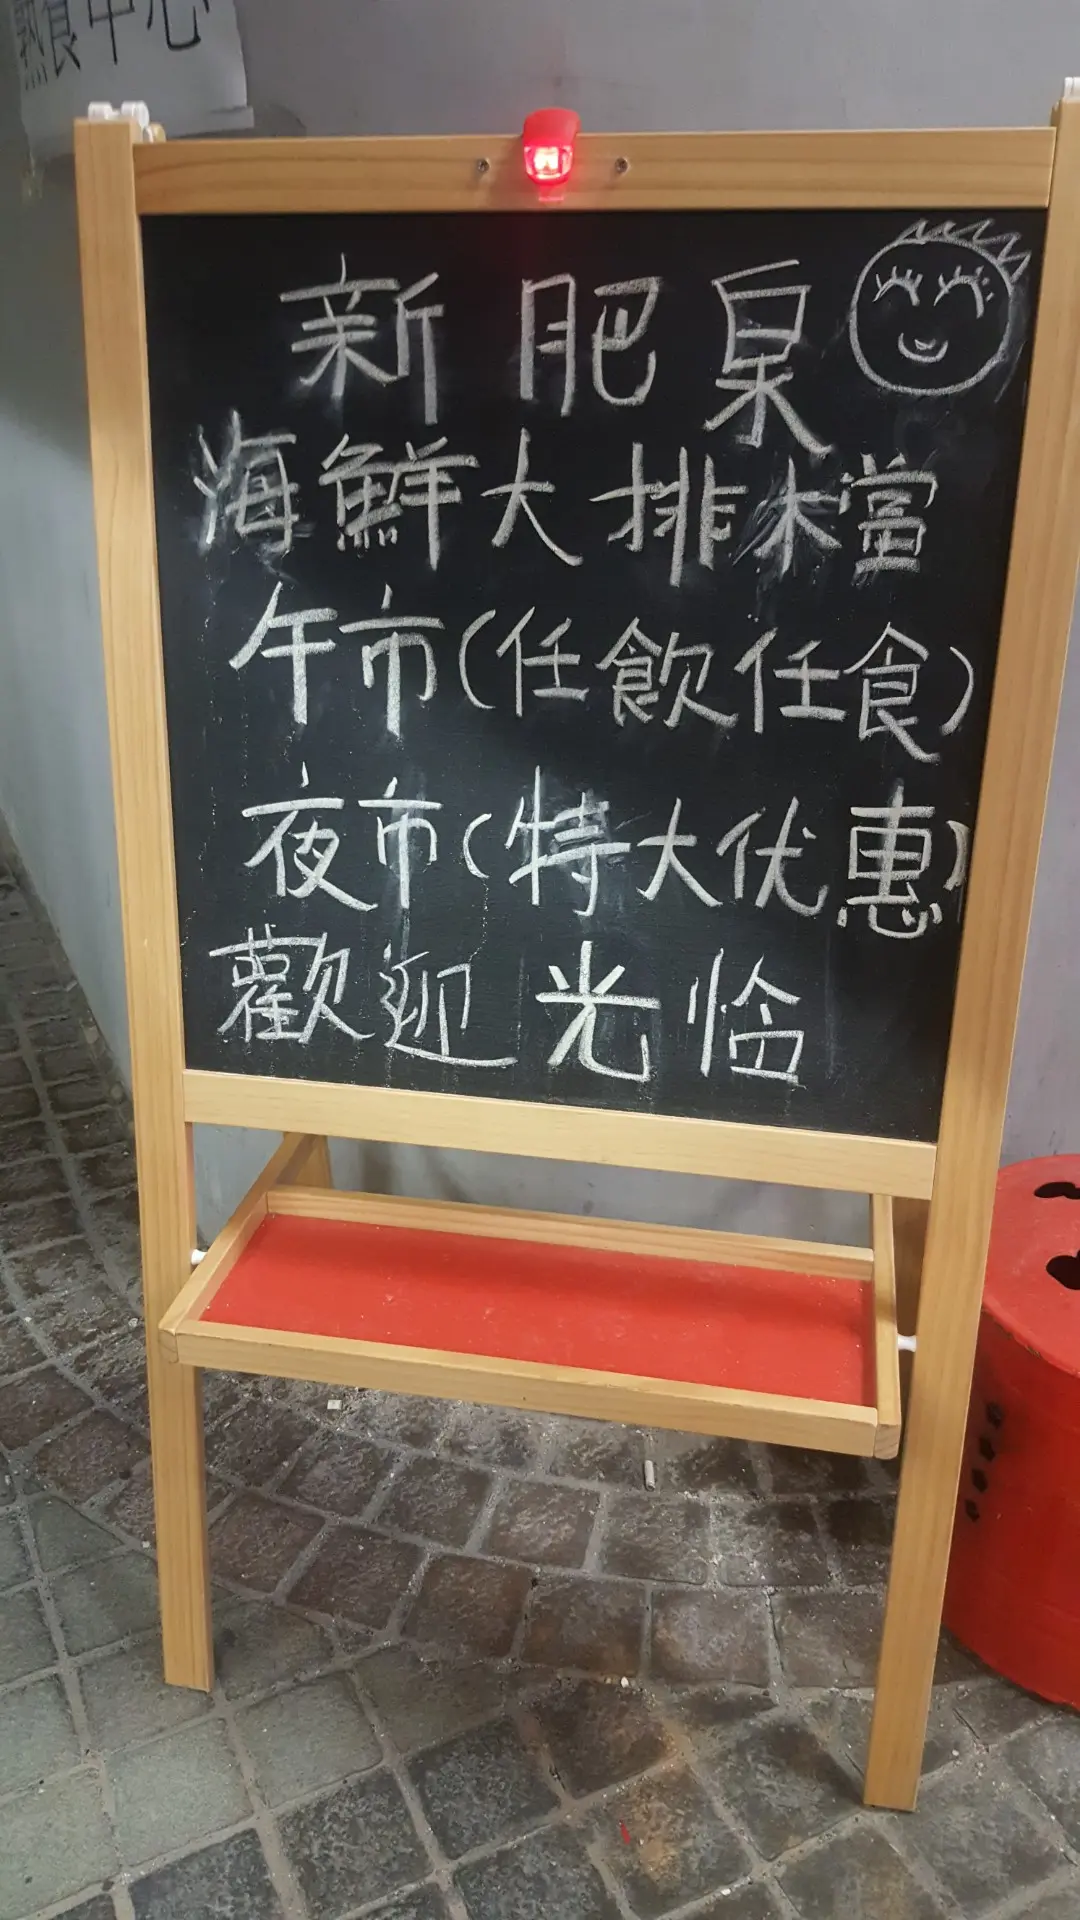 熟食中心
新肥泉
海鮮大排檔
午市(任飲任食)
夜市(特大优惠)
歡迎光临